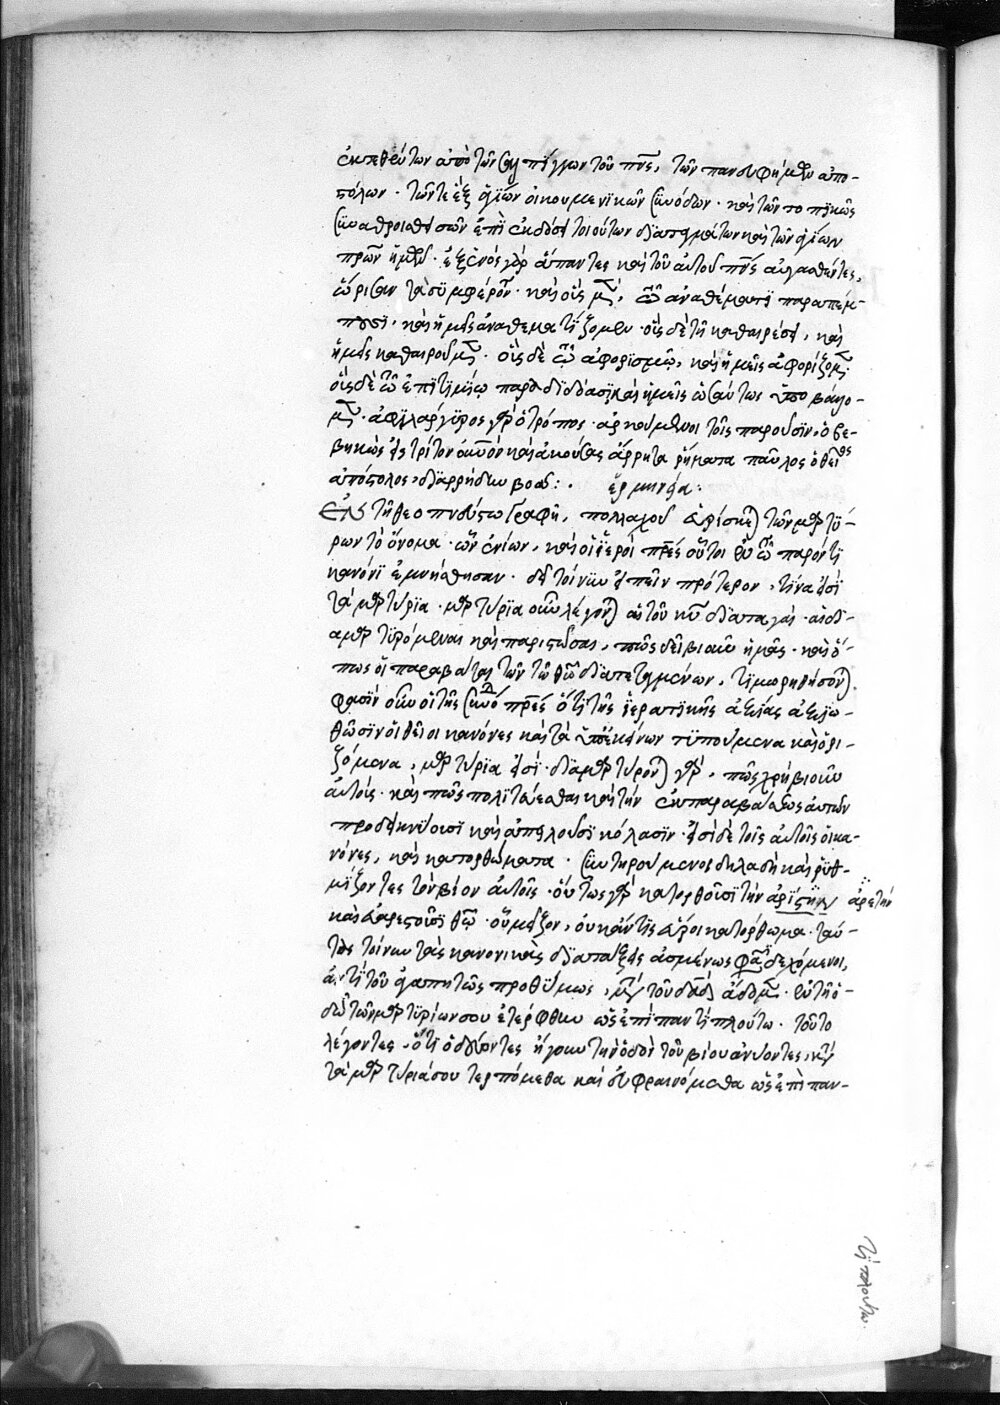 ἐκτεθέντων ἀπὸ τῶν σαλπίγγων τοῦ πνς, τῶν πανευφήμων ἀπο-
στόλων· τῶν τε ἓξ ἁγίων οἰκουμενικῶν συνόδων· καὶ τῶν τοπικῶς
συναθροισθεισῶν ἐπὶ ἐκδόσει τοιούτων διαταγμάτων καὶ τῶν ἁγίων
πρων ἡμῶν· ἐξ ἑνὸς γὰρ ἅπαντες καὶ τοῦ αὐτοῦ πνς αὐγασθέντες,
ὥρισαν τὰ συμφέροντα· καὶ οὓς μὲν, τῶ ἀναθέματι παραπέμ-
πουσι, καὶ ἡμεῖς ἀναθεματίζομεν· οὓς δὲ τῇ καθαιρέσει, καὶ
ἡμεῖς καθαιροῦμεν· οὓς δὲ τῶ ἀφορισμῶ, καὶ ἡμεῖς ἀφορίζομεν·
οὓς δὲ τῶ ἐπιτιμίω παραδιδόασι, καὶ ἡμεῖς ὡσαύτως ὑποβάλλο-
μεν· ἀφιλάργυρος γὰρ ὁ τρόπος· ἀρκούμενοι τοῖς παροῦσιν, ὁ βε-
βηκὼς εἰς τρίτον οὐνὸν καὶ ἀκούσας ἄρρητα ῥήματα παῦλος ὁ θεῖος
ἀπόστολος, διαρρήδην βοᾷ:· ἑρμηνεία:
Ἐν τῇ θεοπνεύστω γραφῇ, πολλαχοῦ εὑρίσκεται τῶν μαρτύ-
ρων τὸ ὄνομα· ὧν ἐνίων, καὶ οἱ ἱεροὶ πρες οὗτοι ἐν τῶ παρόντι
κανόνι ἐμνήσθησαν· δεῖ τοίνυν εἰπεῖν πρότερον, τίνα εἰσὶ
τὰ μαρτύρια· μαρτύρια οὖν λέγονται αἱ τοῦ κυ διαταγαί· αἱ δι-
αμαρτυρόμεναι καὶ παριστῶσαι, πῶς δεῖ βιοῦν ἡμᾶς· καὶ ὅ-
πως οἱ παραβάται τῶν τῶ θῶ διατεταγμένων, τιμωρηθήσονται.
φασὶν οὖν οἱ τῆς συνόδου πρες ὅτι τῆς ἱερατικῆς ἀξίας ἀξιω-
θῶσιν οἱ θεῖοι κανόνες καὶ τὰ ὑπ' ἐκείνων τυπούμενα καὶ ὁρι-
ζόμενα, μαρτύρια εἰσί· διαμαρτύρονται γὰρ, πῶς χρὴ βιοῦν
αὐτούς· καὶ πῶς πολιτεύεσθαι καὶ τὴν ἐκ παραβάσεως αὐτῶν
προδεικνύουσι καὶ ἀπειλοῦσι κόλασιν· εἰσὶ δὲ τοῖς αὐτοῖς οἱ κα-
νόνες, καὶ κατορθώματα· συντηρούμενοι δηλαδὴ καὶ ῥυθ-
μίζοντες τὸν βίον αὐτοῖς· οὕτως γὰρ κατορθοῦσι τὴν ἀρίστην ἀρετήν
καὶ εὐαρεστοῦσι θῶ· οὗ μεῖζον, οὐκ ἄν τις εὕροι κατόρθωμα· ταύ-
τας τοίνυν τὰς κανονικὰς διατάξεις ἀσμένως φασὶ δεχόμενοι,
ἀντὶ τοῦ ἀγαπητῶς προθύμως, μετὰ τοῦ δαδ ἄδομεν· ἐν τῇ ὁ-
δῶ τῶν μαρτυρίων σου ἐτέρφθην ὡς ἐπὶ παντὶ πλούτω· τοῦτο
λέγοντες, ὅτι ὁδεύοντες ἤγουν τὴν ὁδὸν τοῦ βίου ἀνύοντες, κατὰ
τὰ μαρτύριά σου τερπόμεθα καὶ εὐφραινόμεθα ὡς ἐπὶ παν-
τὶ πλούτω·